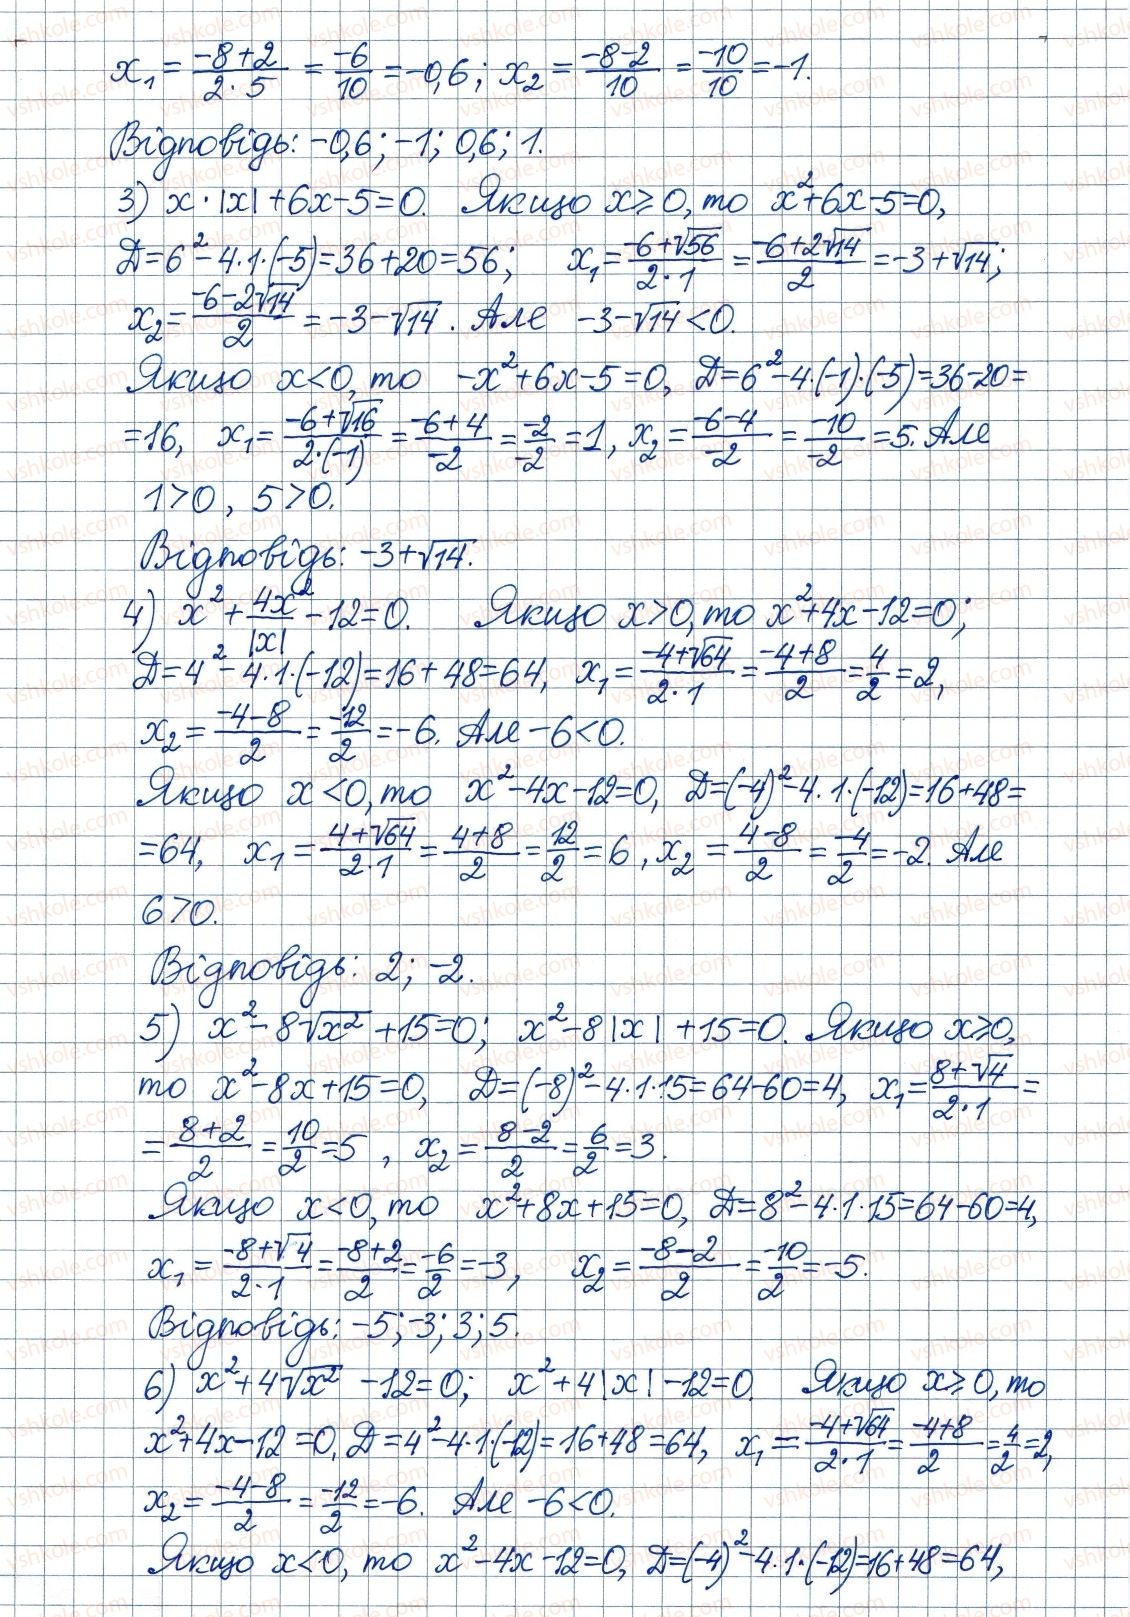 x₁ = (-8+2)/(2·5) = -6/10 = -0,6; x₂ = (-8-2)/10 = -10/10 = -1.
Відповідь: -0,6; -1; 0,6; 1.
3) x·|x|+6x-5=0. Якщо x≥0, то x²+6x-5=0,
Д=6²-4·1·(-5)=36+20=56; x₁ = (-6+√56)/(2·1) = (-6+2√14)/2 = -3+√14;
x₂ = (-6-2√14)/2 = -3-√14. Але -3-√14<0.
Якщо x<0, то -x²+6x-5=0, Д=6²-4·(-1)·(-5)=36-20=
=16, x₁ = (-6+√16)/(2·(-1)) = (-6+4)/-2 = -2/-2 = 1, x₂ = (-6-4)/-2 = -10/-2 = 5. Але
1>0, 5>0.
Відповідь: -3+√14.
4) x² + 4x²/|x| - 12=0. Якщо x>0, то x²+4x-12=0;
Д=4²-4·1·(-12)=16+48=64, x₁ = (-4+√64)/(2·1) = (-4+8)/2 = 4/2 = 2,
x₂ = (-4-8)/2 = -12/2 = -6. Але -6<0.
Якщо x<0, то x²-4x-12=0, Д=(-4)²-4·1·(-12)=16+48=
=64, x₁ = (4+√64)/(2·1) = (4+8)/2 = 12/2 = 6, x₂ = (4-8)/2 = -4/2 = -2. Але
6>0.
Відповідь: 2; -2.
5) x²-8√x²+15=0; x²-8|x|+15=0. Якщо x≥0,
то x²-8x+15=0, Д=(-8)²-4·1·15=64-60=4, x₁ = (8+√4)/(2·1) =
= (8+2)/2 = 10/2 = 5, x₂ = (8-2)/2 = 6/2 = 3.
Якщо x<0, то x²+8x+15=0, Д=8²-4·1·15=64-60=4,
x₁ = (-8+√4)/(2·1) = (-8+2)/2 = -6/2 = -3, x₂ = (-8-2)/2 = -10/2 = -5.
Відповідь: -5; -3; 3; 5.
6) x²+4√x²-12=0; x²+4|x|-12=0 Якщо x≥0, то
x²+4x-12=0, Д=4²-4·1·(-12)=16+48=64, x₁ = (-4+√64)/(2·1) = (-4+8)/2 = 4/2 = 2,
x₂ = (-4-8)/2 = -12/2 = -6. Але -6<0.
Якщо x<0, то x²-4x-12=0, Д=(-4)²-4·1·(-12)=16+48=64,
vshkole.com